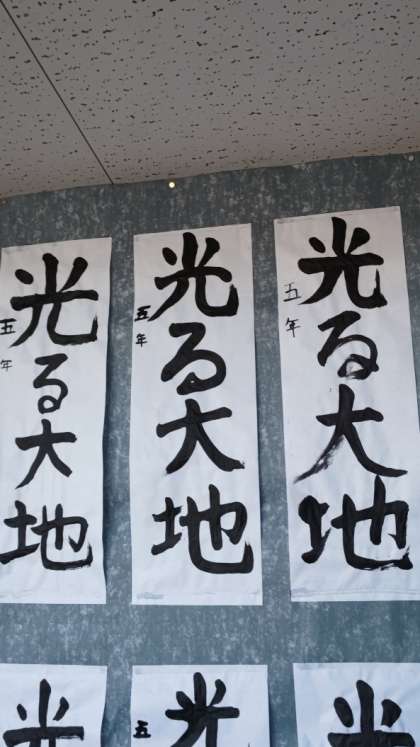 光る大地
五年
光る大地
五年
光る大地
五年
光
光
五
光